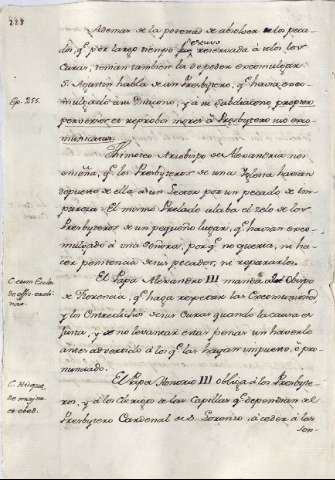 288
Ademas de la potestad de absolver de los peca-
dos, q.e por largo tiempo estuvo reservada à solos los
Curas, tenian tambien la de poder excomulgar.
S. Agustin habla de un Presbytero, q.e havia exco-
Ep. 255.
mulgado à un Diacono, y à un Subdiacono propter
perversos et reprobos mores à Presbytero suo exco-
municatum.
Thimoteo Arzobispo de Alexandria nos
enseña, q.e los Presbyteros de una Iglesia havian
depuesto de ella à un Lector por un pecado de im-
pureza. El mismo Prelado alaba el zelo de los
Presbyteros de un pequeño lugar, q.e havian exco-
mulgado à una Señora, por q.e no queria, ni ha-
cer penitencia de su pecado, ni repararlo.
El Papa Alexandro III manda al Obispo
de Florencia, q.e haga respetar las Excomuniones
y los Entredichos de sus Curas quando la causa es
justa, y no levantar estas penas sin haverlo
antes advertido à los q.e las hayan impuesto, ò pro-
nunciado.
El Papa Honorio III obliga à los Presbyte-
de majorit.
et obed.
ros, y à los Clerigos de las Capillas q.e dependian del
Presbytero Cardenal de S. Lorenzo, à ceder à las
sen-